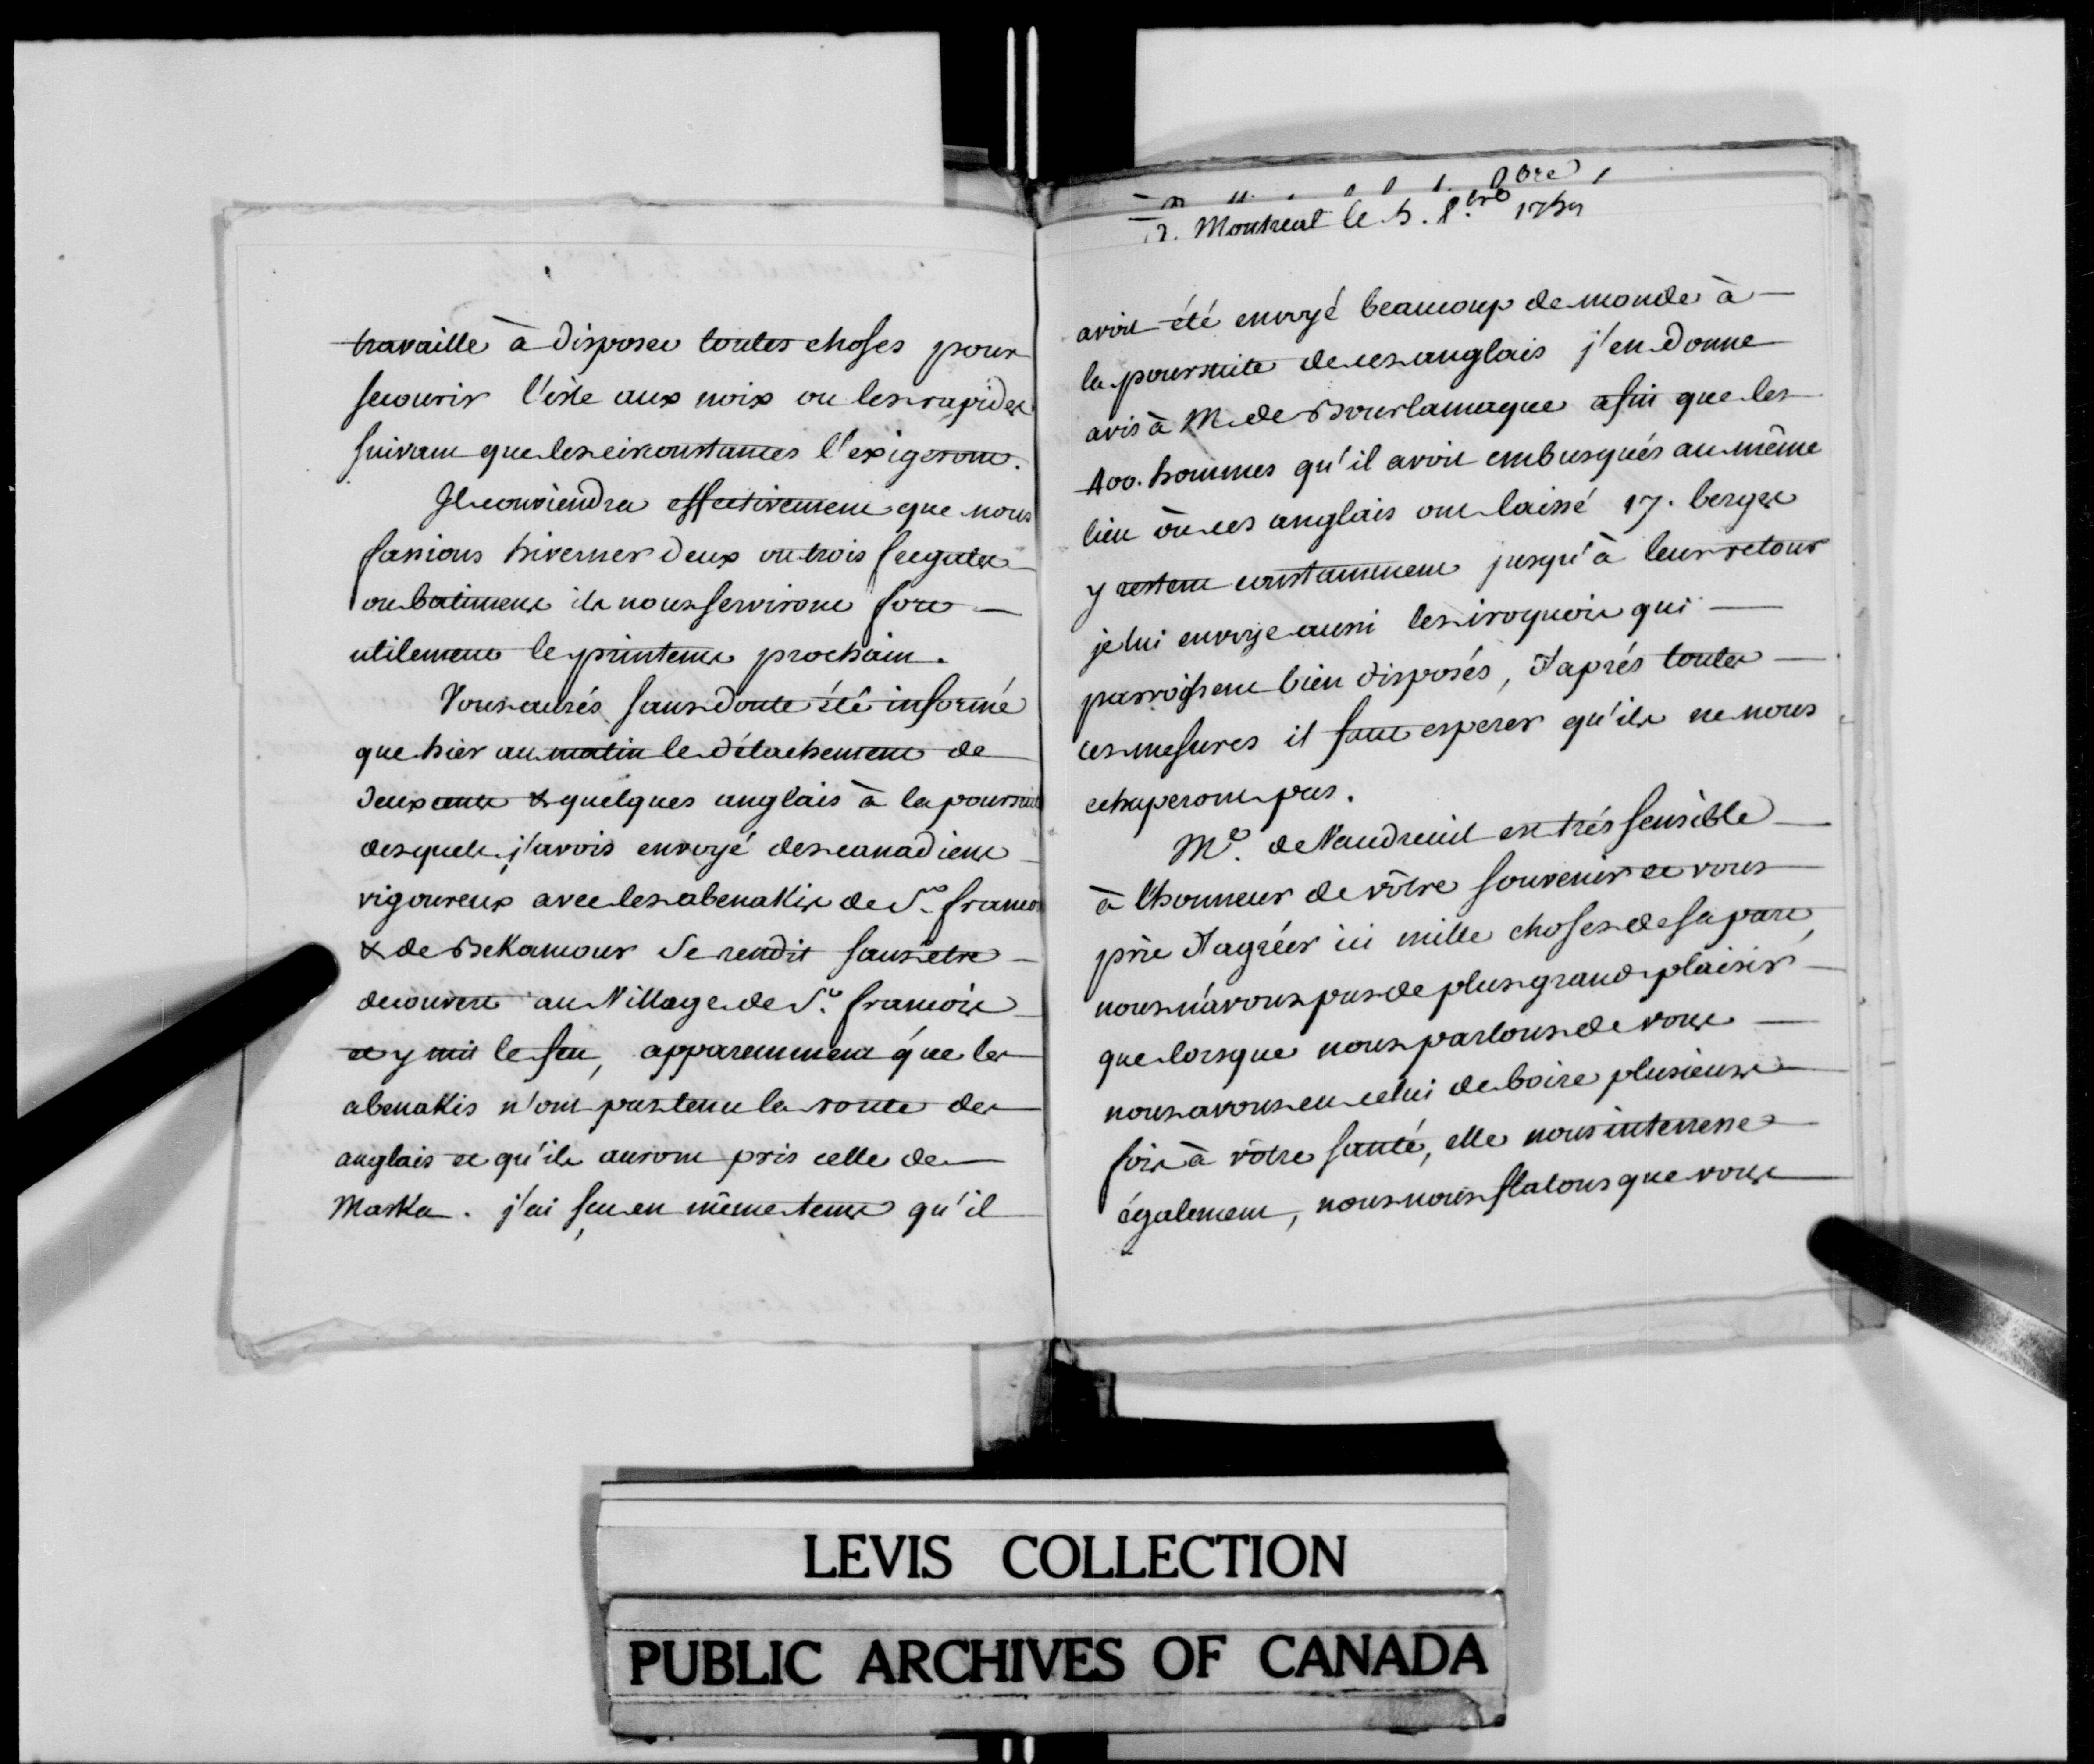 travaille à disposer toutes choses pour
secourir l'isle aux noix ou les rapides
suivant que les circonstances l'exigeront.
Il conviendra effectivement que nous
fassions hiverner deux ou trois fregates
ou batimens ils nous serviront fort
utilement le printems prochain.
Vous aurés sans doute été informé
que hier au matin le détachement de
deux cents & quelques anglais à la poursuite
desquels j'avois envoyé des canadiens
vigoureux avec les abenakis de St. francois
& de Bekancour se rendit sans etre
decouvert au Village de St. francois
et y mit le feu, apparemment que les
abenakis n'ont pas tenu la route des
anglais et qu'ils auront pris celle de
Maska. j'ai sçu en même tems qu'il
Montreal le 5. 8.bre 1759
avoit été envoyé beaucoup de monde à
la poursuite de ces anglais j'en donne
avis à M. de Bourlamaque afin que les
400. hommes qu'il avoit embusqués au même
lieu où ces anglais ont laissé 17. berges
y restent constamment jusqu'à leur retour
je lui envoye aussi les iroquois qui
parroissent bien disposés, d'aprés toutes
ces mesures il faut esperer qu'ils ne nous
echaperont pas.
Me. de Vaudreuil est trés sensible
à l'honneur de vôtre souvenir et vous
prie d'agréer ici mille choses de sa part,
nous n'avons pas de plus grand plaisir
que lorsque nous parlons de vous
nous avons eu celui de boire plusieurs
fois à vôtre santé, elle nous interresse
également, nous nous flatons que vous
LEVIS COLLECTION
PUBLIC ARCHIVES OF CANADA